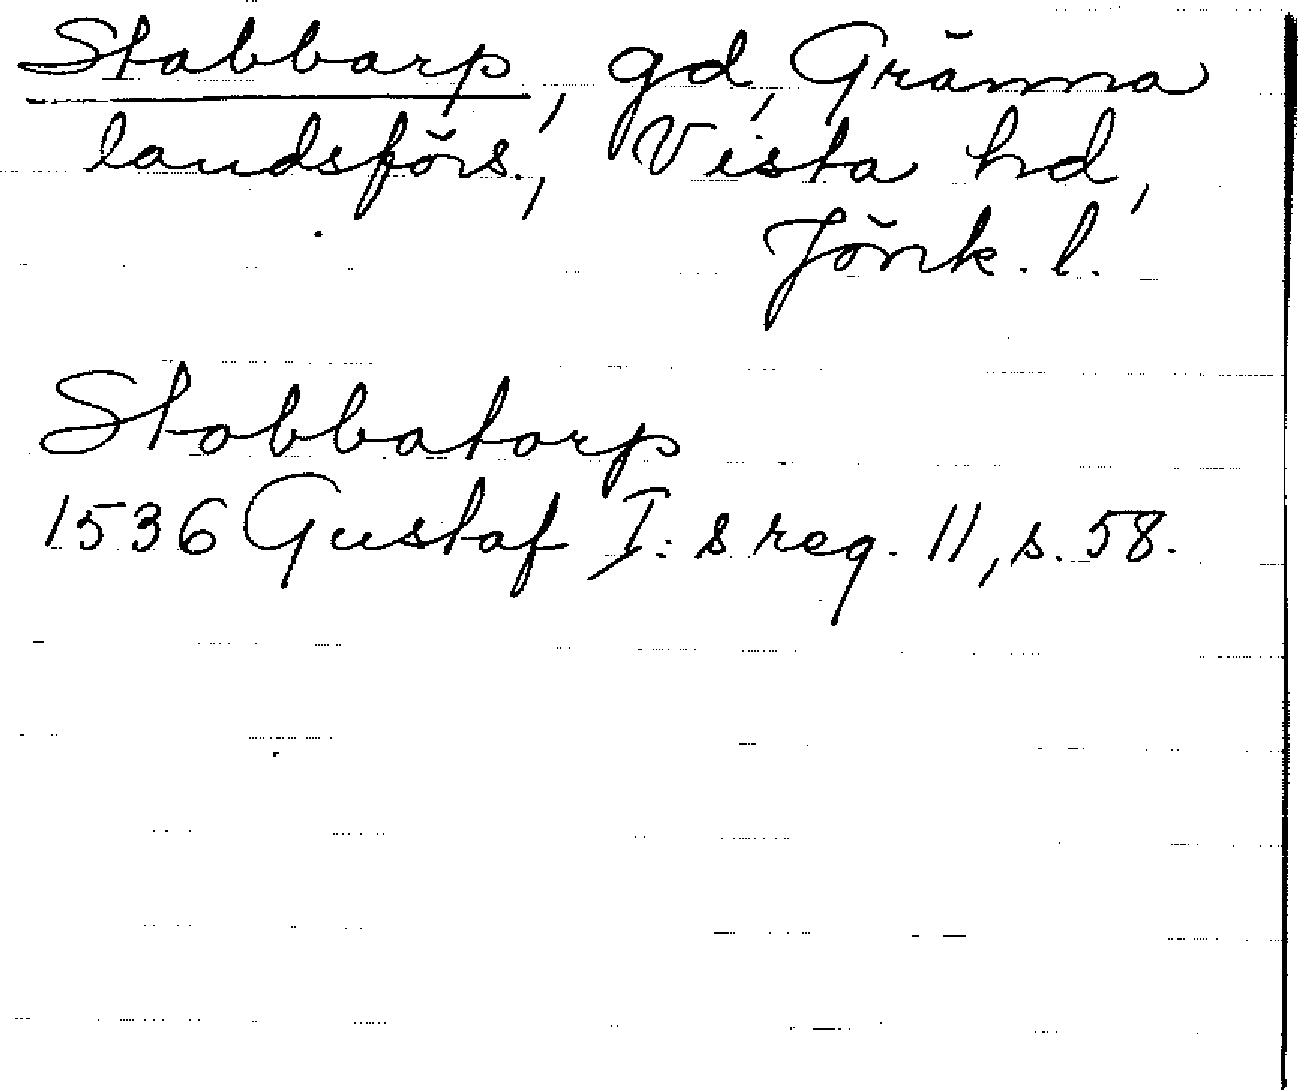 Stabbarp, gd, Gränna
landsförs., Vista hd,
Jönk. l.
Stobbatorp
1536 Gustaf I:s reg. 11, s. 58.